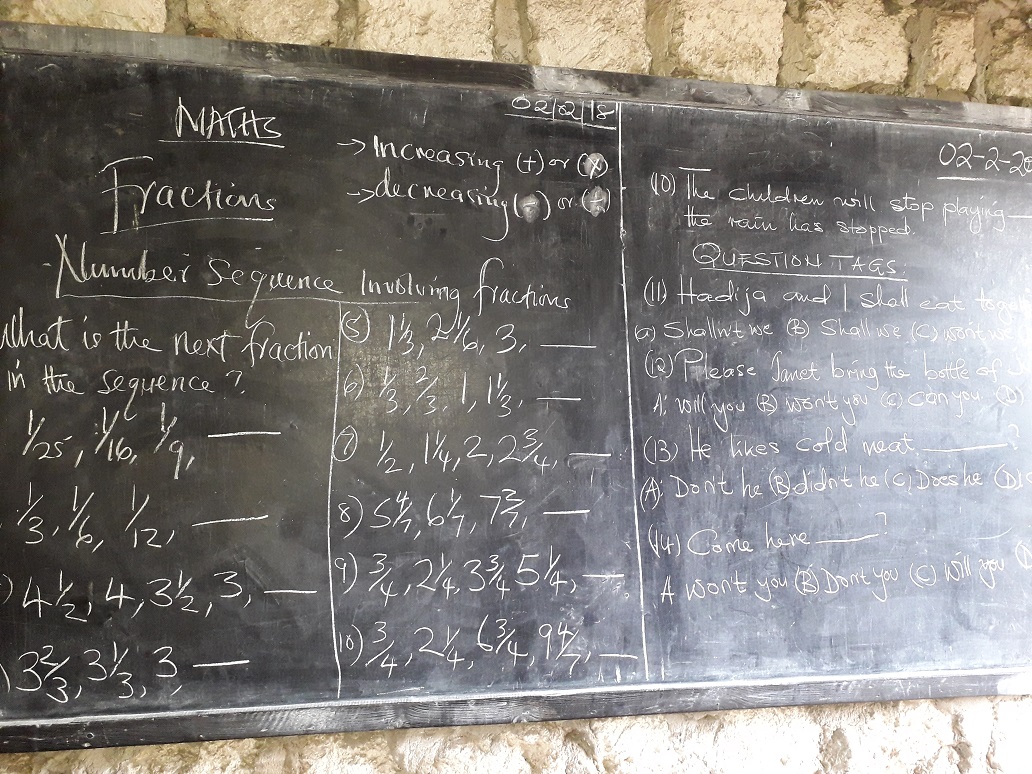 MATHS
02/02/18
→ Increasing (+) or (×)
→ decreasing (-) or (÷)
Fractions
Number Sequence Involving fractions
What is the next fraction
in the sequence?
1/25, 1/16, 1/9, ___
1/3, 1/6, 1/12, ___
) 4 1/2, 4, 3 1/2, 3, ___
) 3 2/3, 3 1/3, 3, ___
5) 1 1/3, 2 1/6, 3, ___
6) 1/3, 2/3, 1, 1 1/3, ___
7) 1/2, 1 1/4, 2, 2 3/4, ___
8) 5 4/7, 6 1/7, 7 2/7, ___
9) 3/4, 2 1/4, 3 3/4, 5 1/4, ___
10) 3/4, 2 1/4, 6 3/4, 9 4/7, ___
02-2-20
(10) The children will stop playing ___
the rain has stopped.
QUESTION TAGS.
(11) Hadija and I shall eat
(a) Shalln't we (B) Shall we (C) won't we
(12) Please Janet bring the bottle of
A. will you (B) won't you (C) can you (D)
(13) He likes cold meat ___?
(A) Don't he (B) didn't he (C) Does he (D)
(14) Come here ___?
A won't you (B) Don't you (C) will you